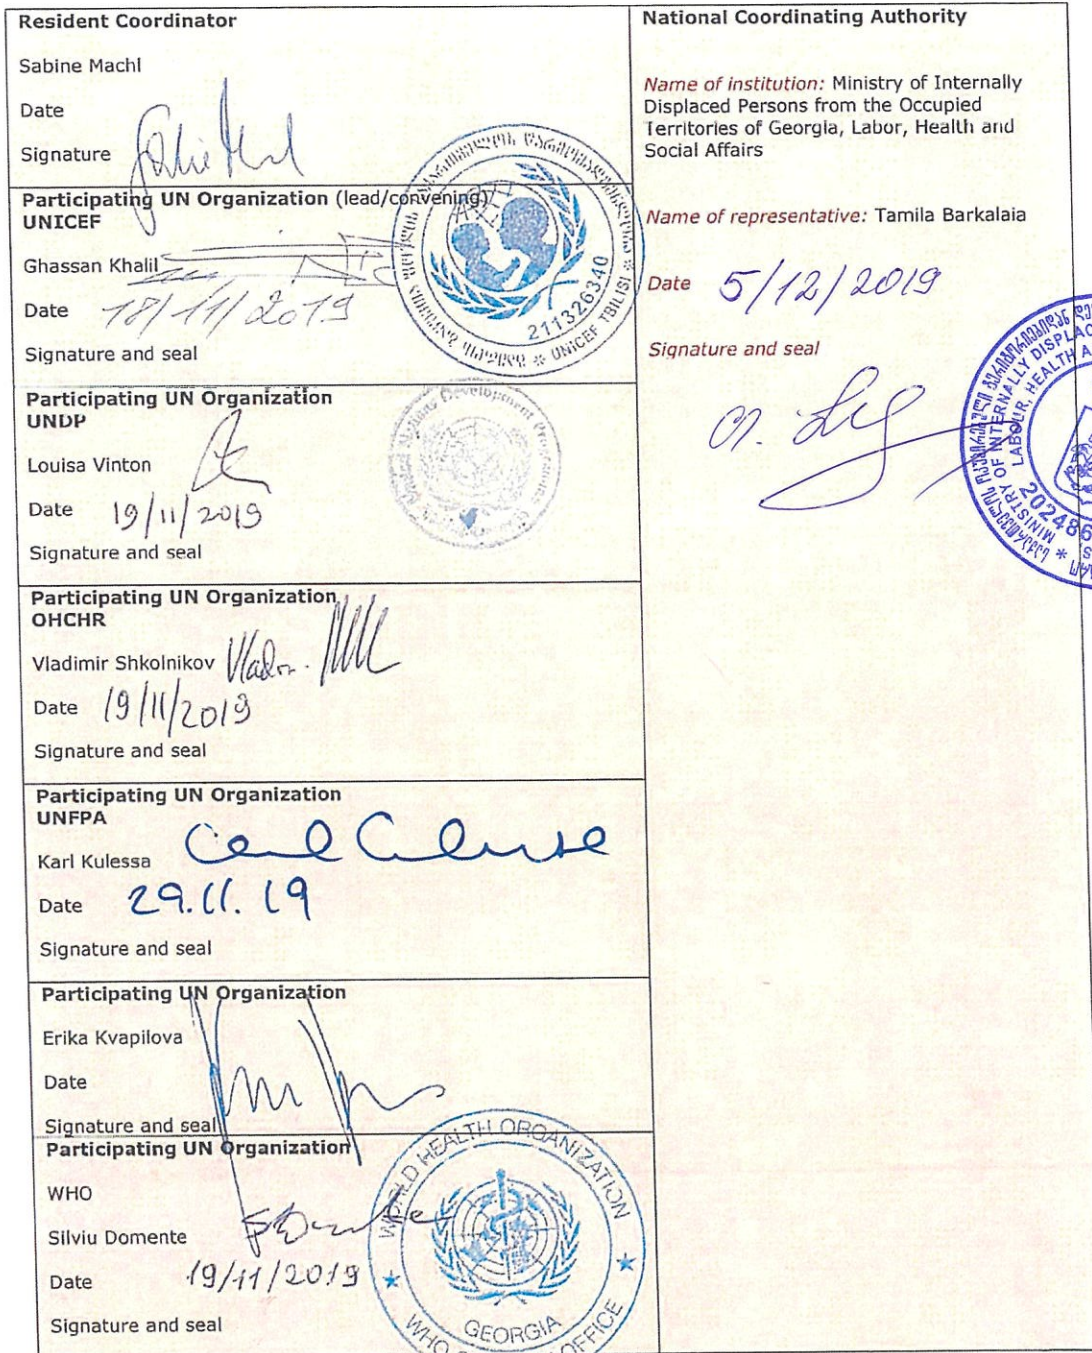 Resident Coordinator
Sabine Machl
Date
Signature
Participating UN Organization (lead/convening)
UNICEF
Ghassan Khalil
Date 18/11/2019
Signature and seal
211326340
UNICEF TBILISI
Participating UN Organization
UNDP
Louisa Vinton
Date 19/11/2019
Signature and seal
Development
Participating UN Organization
OHCHR
Vladimir Shkolnikov
Date 19/11/2019
Signature and seal
Participating UN Organization
UNFPA
Karl Kulessa
Date 29.11.19
Signature and seal
Participating UN Organization
Erika Kvapilova
Date
Signature and seal
Participating UN Organization
WHO
Silviu Domente
Date 19/11/2019
Signature and seal
WORLD HEALTH ORGANIZATION
GEORGIA
WHO
OFFICE
National Coordinating Authority
Name of institution: Ministry of Internally
Displaced Persons from the Occupied
Territories of Georgia, Labor, Health and
Social Affairs
Name of representative: Tamila Barkalaia
Date 5/12/2019
Signature and seal
MINISTRY OF INTERNALLY
LABOUR, HEALTH